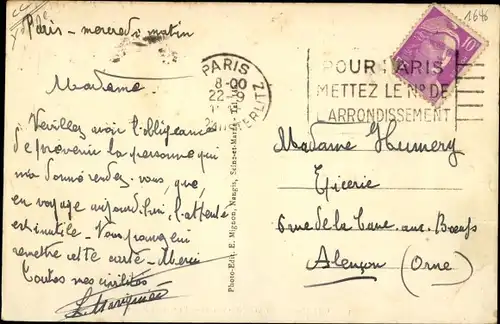 Paris - mercredi matin
1646
Madame.
Veuillez avoir l'obligeance
de prévenir la personne qui
m'a donné rendez-vous, que,
en voyage aujourd'hui, l'attente
est inutile. Vous pouvez lui
remettre cette carte - Merci
Toutes mes civilités
Photo-Edit. E. Mignon, Nangis, Seine-et-Marne - Tél.
PARIS
8-00
22-9
AUSTERLITZ
POUR PARIS
METTEZ LE N° DE
L'ARRONDISSEMENT
10
Madame Humery
Epicerie
6 rue de la Cave aux Boeufs
Alençon (Orne)